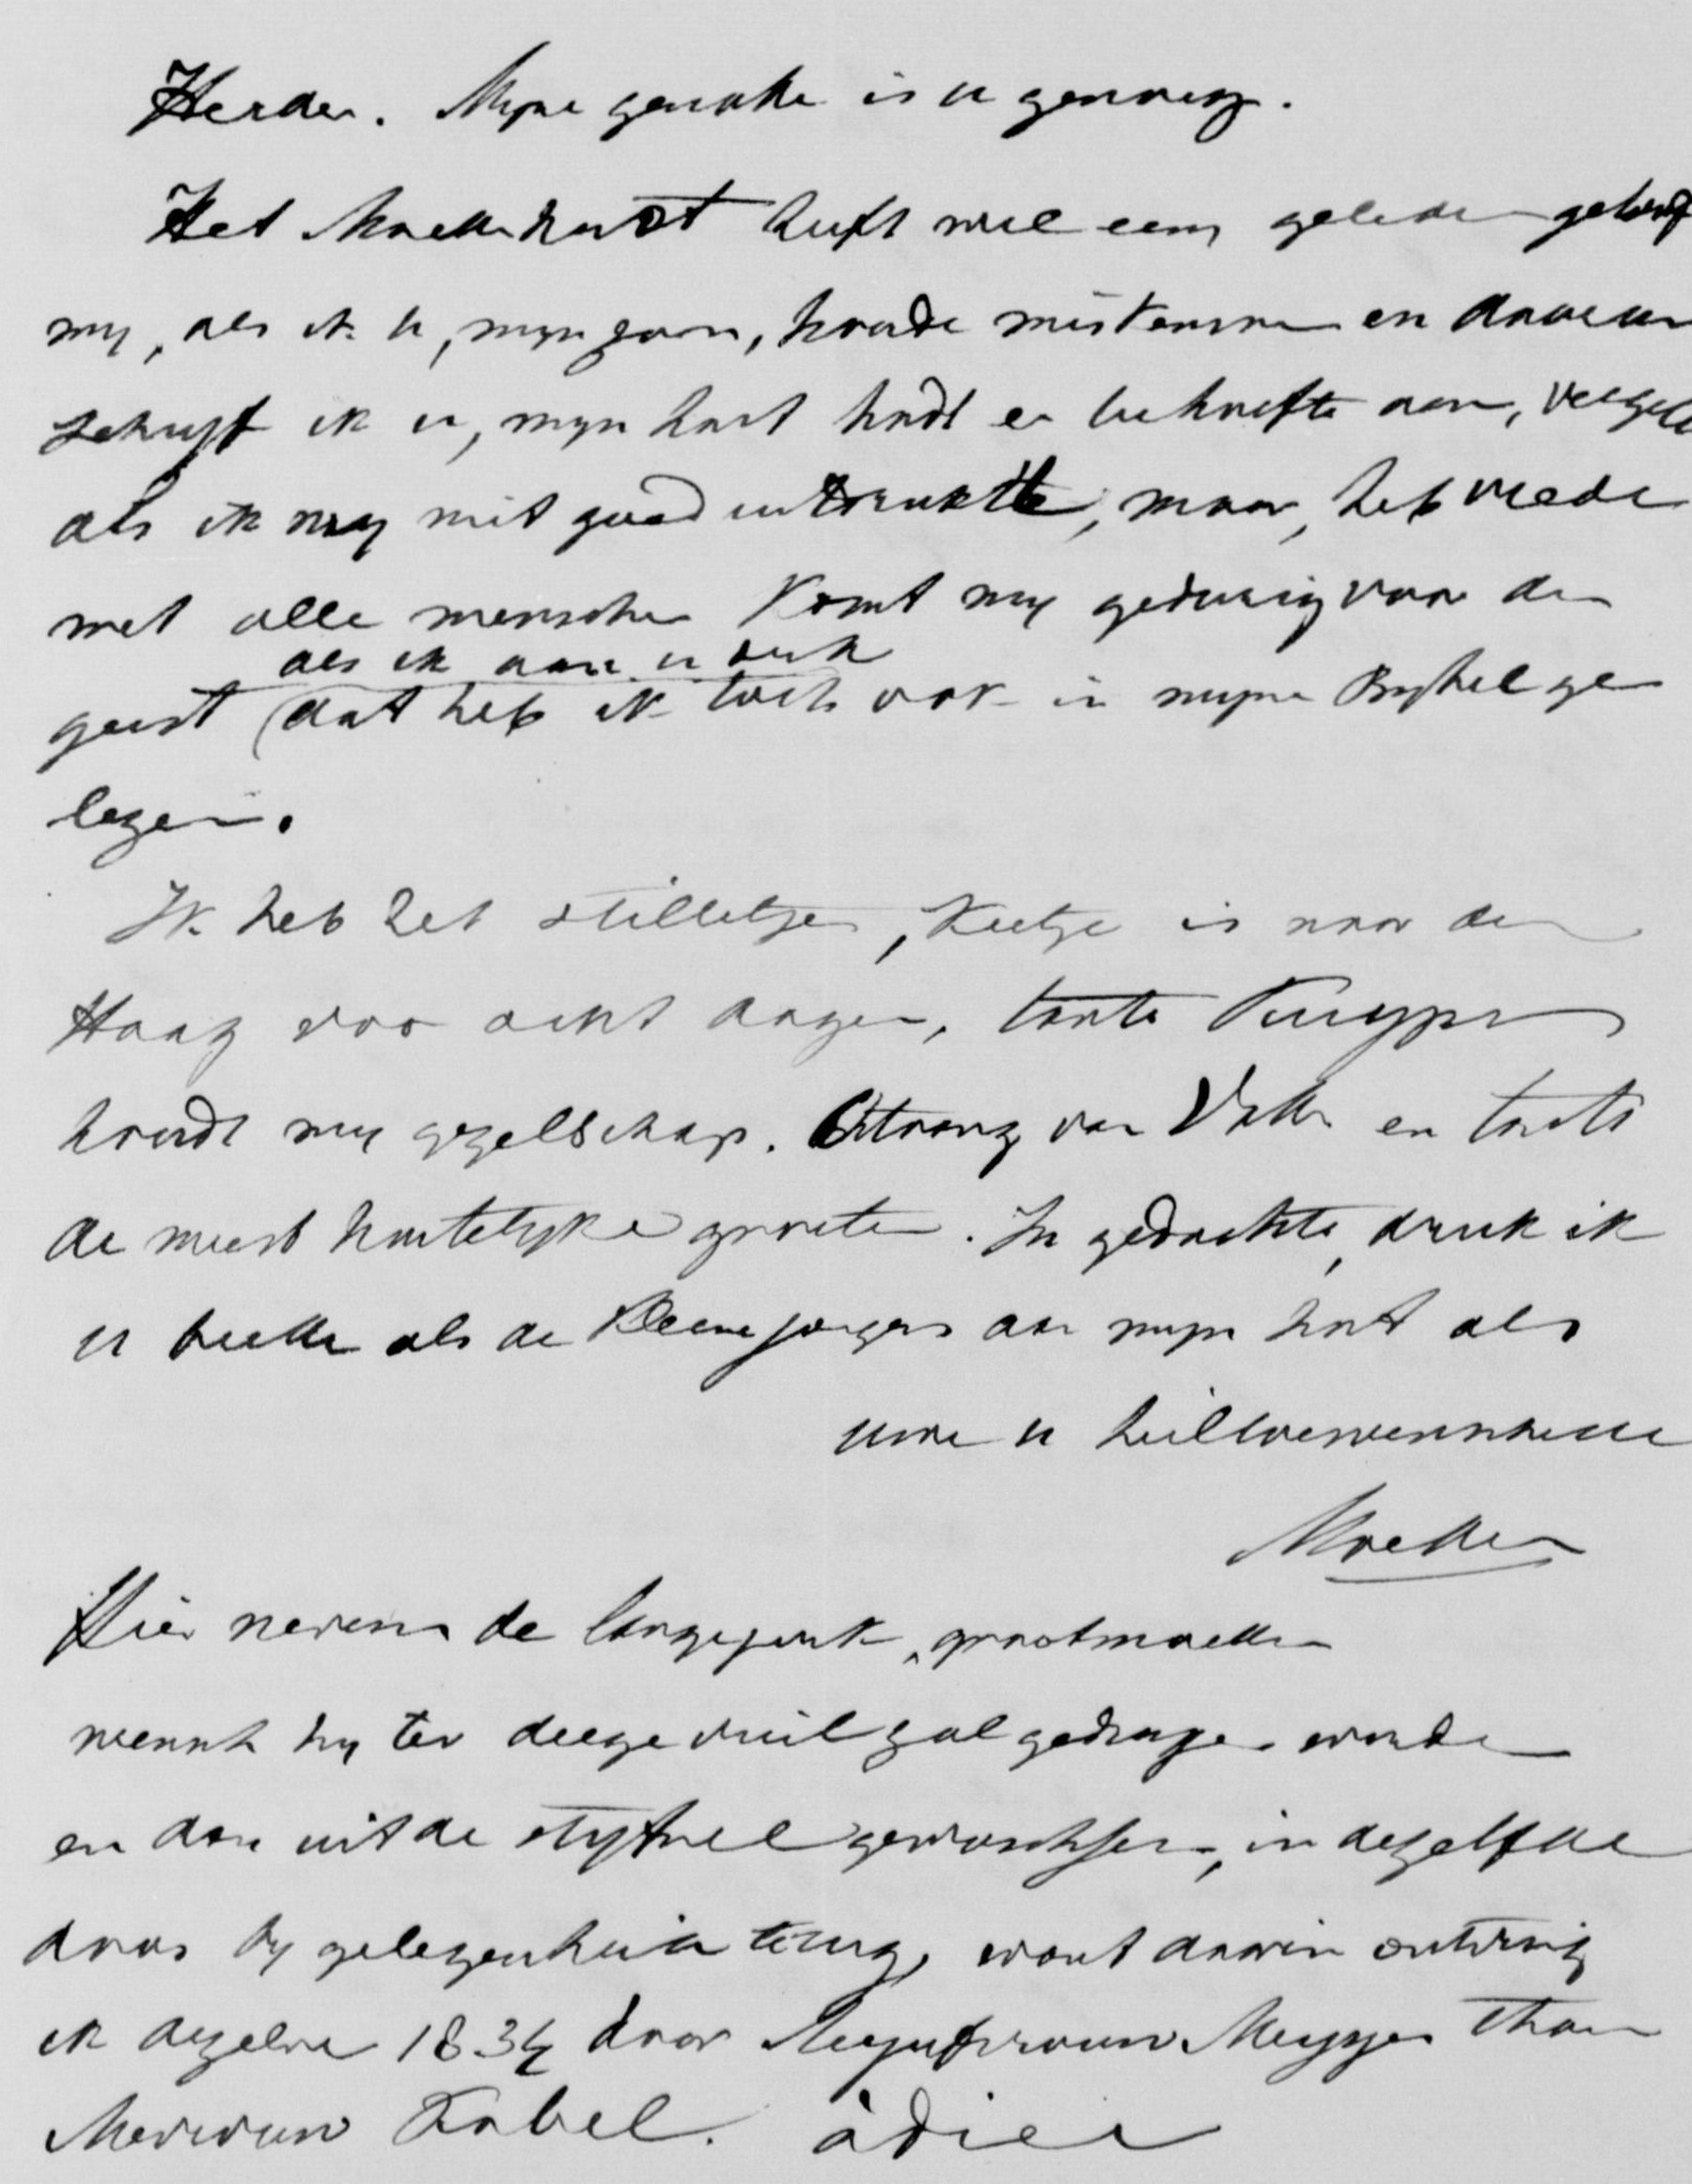 Herder. Mijne genade is u genoeg.
Het Moederhart heeft wel eens geleden geloof
my, als ik u, mijn zoon, konde miskennen en daarom
schryf ik u, mijn hart hadt er behoefte aan, vergeef
als ik my niet goed uitdrukte, maar, heb vrede
met alle menschen komt my gedurig voor den
als ik aan u denk
geest (dat heb ik toch ook in mijne Bijbel ge
lezen.
Ik heb het stilletjes, Keetje is naar den
Haag voor acht dagen, tante Kuyper
houdt my gezelschap. Ontvang van Vader en tante
de meest hartelyke groeten. In gedachte, druk ik
u beide als de kleine jongens aan mijn hart als
uwe u heiltoewenschende
Moeder
Hier nevens de lange jurk, grootmoeder
wenscht hy ter deege vuil zal gedragen worden
en dan uit de styfsel gewasschen, in dezelfde
doos by gelegenheid terug, want daarin ontving
ik dezelve 1834 door Mejufvrouw Meyjes thans
Mevrouw Kabel. àdieu